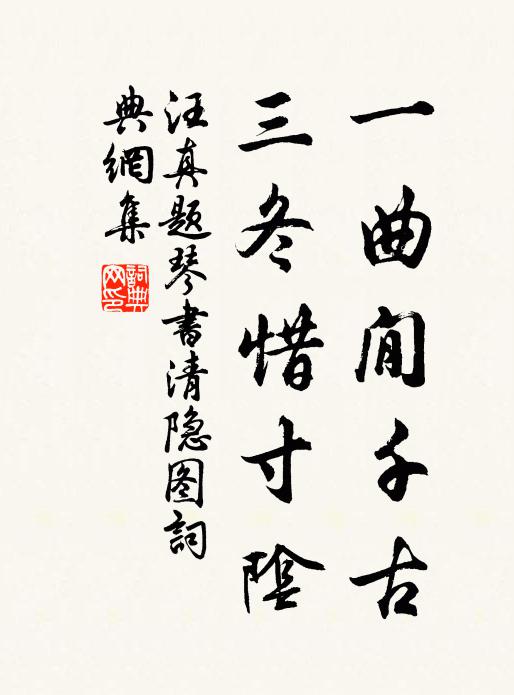 一曲閒千古
三冬惜寸陰
汪真题琴書清隐图詞
典網集
詞典网印